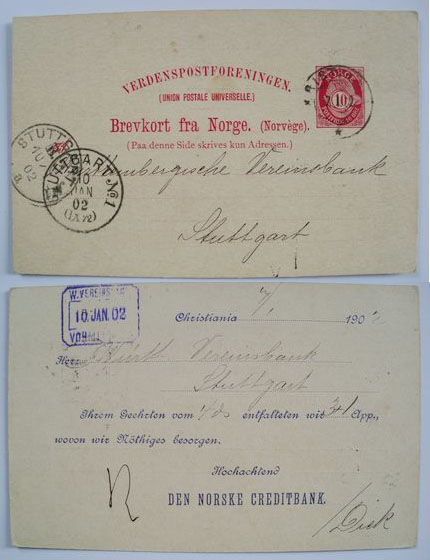 VERDENSPOSTFORENINGEN.
(UNION POSTALE UNIVERSELLE.)
NORGE
10
Brevkort fra Norge. (Norvège).
(Paa denne Side skrives kun Adressen.)
STUTTG
10
02
STUTTGART No 1
10
JAN
02
Vereinsbank
Stuttgart
W. VEREINSB
10. JAN. 02
VORM
Christiania 7/1 190
Herrn Württ Vereinsbank
Stuttgart
Ihrem Geehrten vom ds entfalteten wir App.,
wovon wir Nöthiges besorgen.
Hochachtend
DEN NORSKE CREDITBANK.